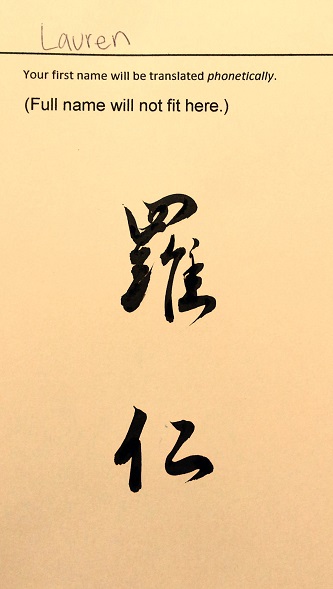 Lauren
Your first name will be translated phonetically.
(Full name will not fit here.)
羅
仁